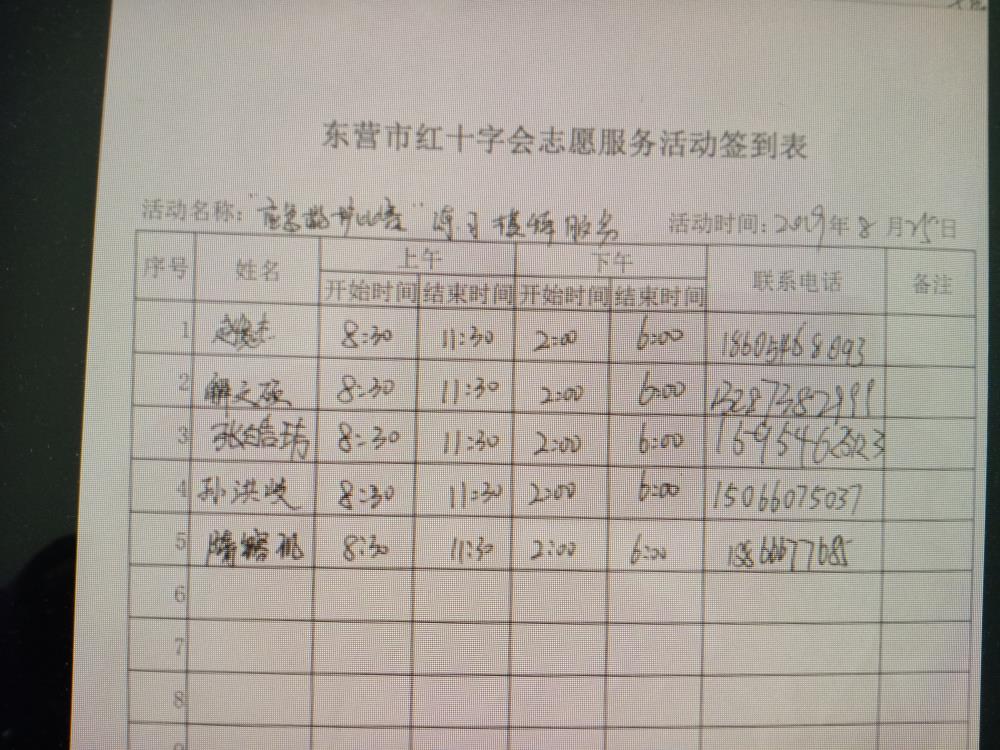 东营市红十字会志愿服务活动签到表
活动名称："应急救护培" 练习模 服务 活动时间：2019年8月25日
序号 姓名 上午 下午 联系电话 备注
开始时间 结束时间 开始时间 结束时间
1 赵 杰 8:30 11:30 2:00 6:00 18605468093
2 解文硕 8:30 11:30 2:00 6:00 13287382991
3 张皓玮 8:30 11:30 2:00 6:00
4 孙洪岐 8:30 11:30 2:00 6:00 15066075037
5 隋 8:30 11:30 2:00 6:00 18866677685
6
7
8